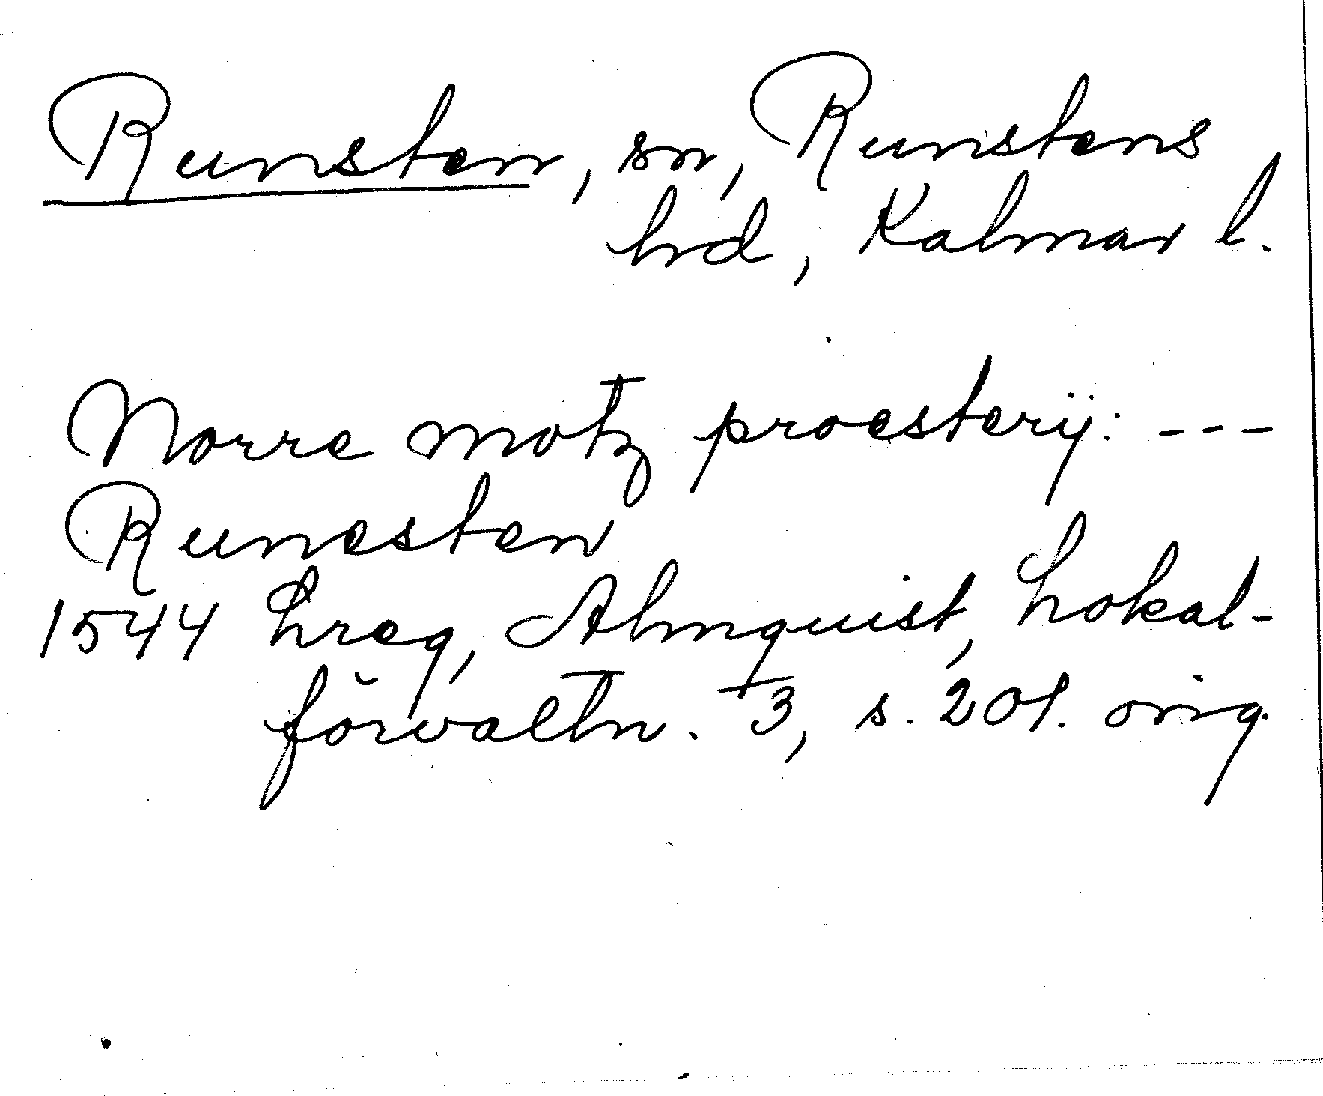 Runsten, sn, Runstens
hd, Kalmar l.
Norre motz proesterij: ---
Runesten
1544 Lreg, Almquist, Lokal-
förvaltn. 3, s. 201. orig.